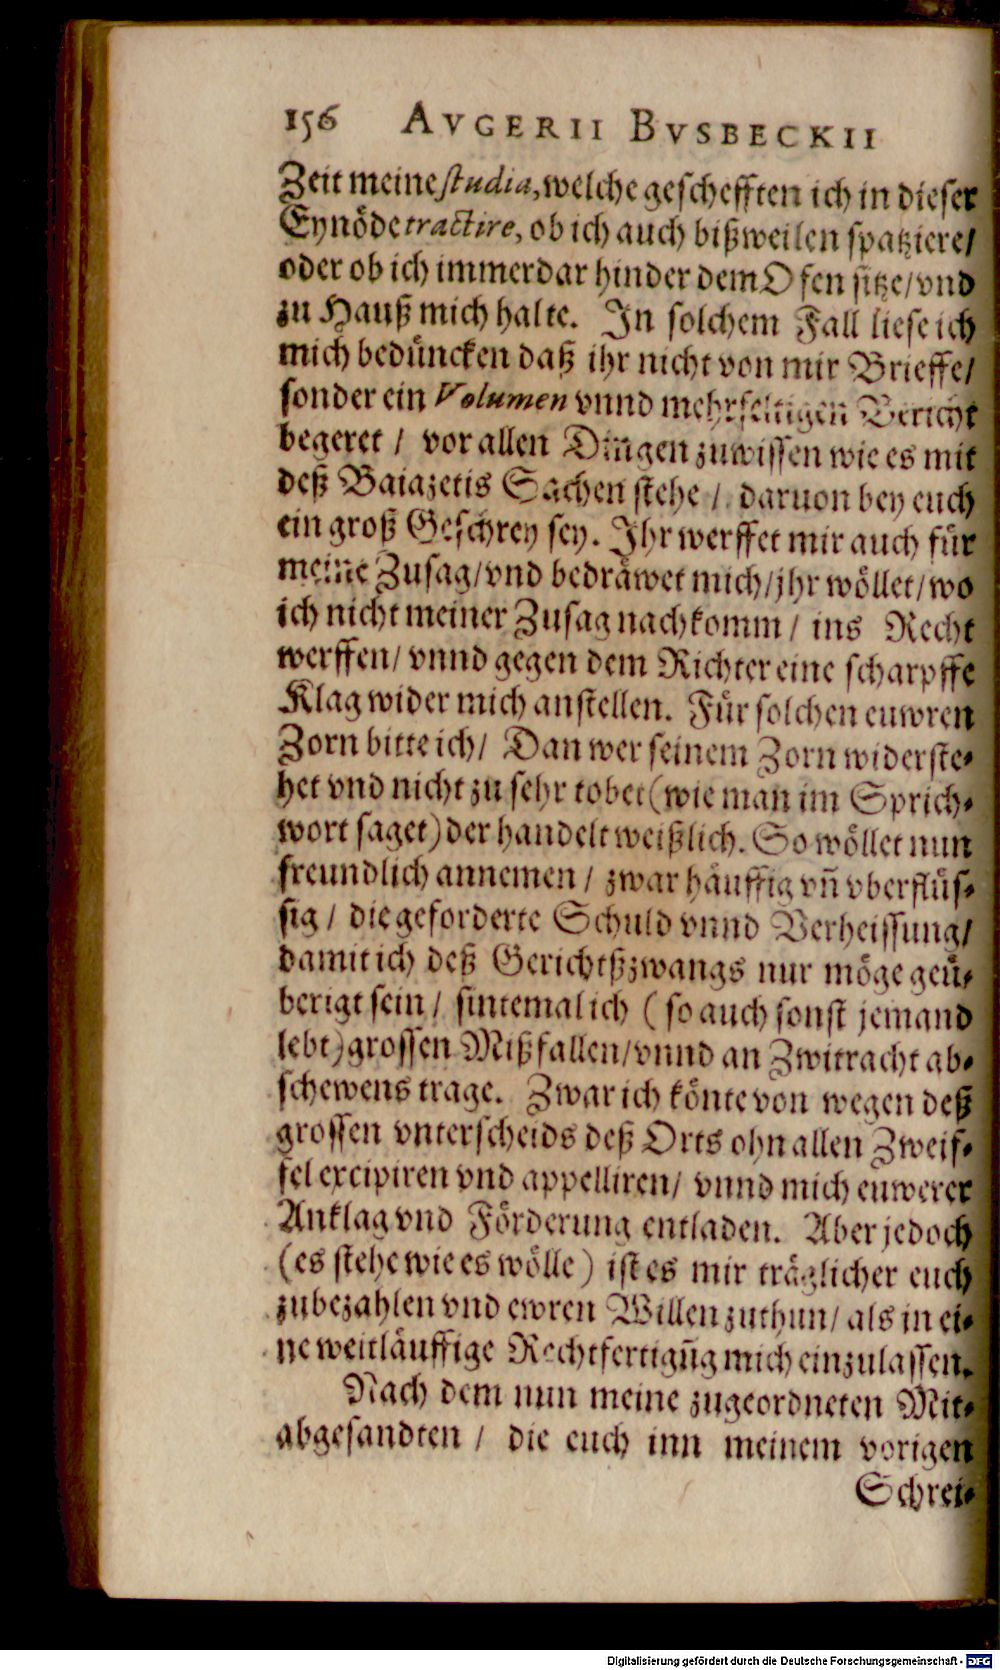 156 AVGERII BVSBECKII
Zeit meine studia, welche geschefften ich in dieser
Eynöde tractire, ob ich auch bißweilen spatziere/
oder ob ich immerdar hinder dem Ofen sitze/vnd
zu Hauß mich halte. In solchem Fall liese ich
mich bedüncken daß ihr nicht von mir Brieffe/
sonder ein Volumen vnnd mehrfeltigen Bericht
begeret / vor allen Dingen zuwissen wie es mit
deß Baiazetis Sachen stehe / daruon bey euch
ein groß Geschrey sey. Ihr werffet mir auch für
meine Zusag/vnd bedräwet mich/jhr wöllet/wo
ich nicht meiner Zusag nachkomm / ins Recht
werffen/ vnnd gegen dem Richter eine scharpffe
Klag wider mich anstellen. Für solchen euwren
Zorn bitte ich/ Dan wer seinem Zorn widerste-
het vnd nicht zu sehr tobet (wie man im Sprich-
wort saget) der handelt weißlich. So wöllet nun
freundlich annemen / zwar häuffig vñ vberflüs-
sig / die geforderte Schuld vnnd Verheissung/
damit ich deß Gerichtßzwangs nur möge geü-
berigt sein / sintemal ich ( so auch sonst jemand
lebt) grossen Mißfallen/vnnd an Zwitracht ab-
schewens trage. Zwar ich könte von wegen deß
grossen vnterscheids deß Orts ohn allen Zweif-
fel excipiren vnd appelliren/ vnnd mich euwerer
Anklag vnd Förderung entladen. Aber jedoch
(es stehe wie es wölle) ist es mir träglicher euch
zubezahlen vnd ewren Willen zuthun/ als in ei-
ne weitläuffige Rechtfertigũg mich einzulassen.
Nach dem nun meine zugeordneten Mit-
abgesandten / die euch inn meinem vorigen
Schrei-
Digitalisierung gefördert durch die Deutsche Forschungsgemeinschaft - DFG